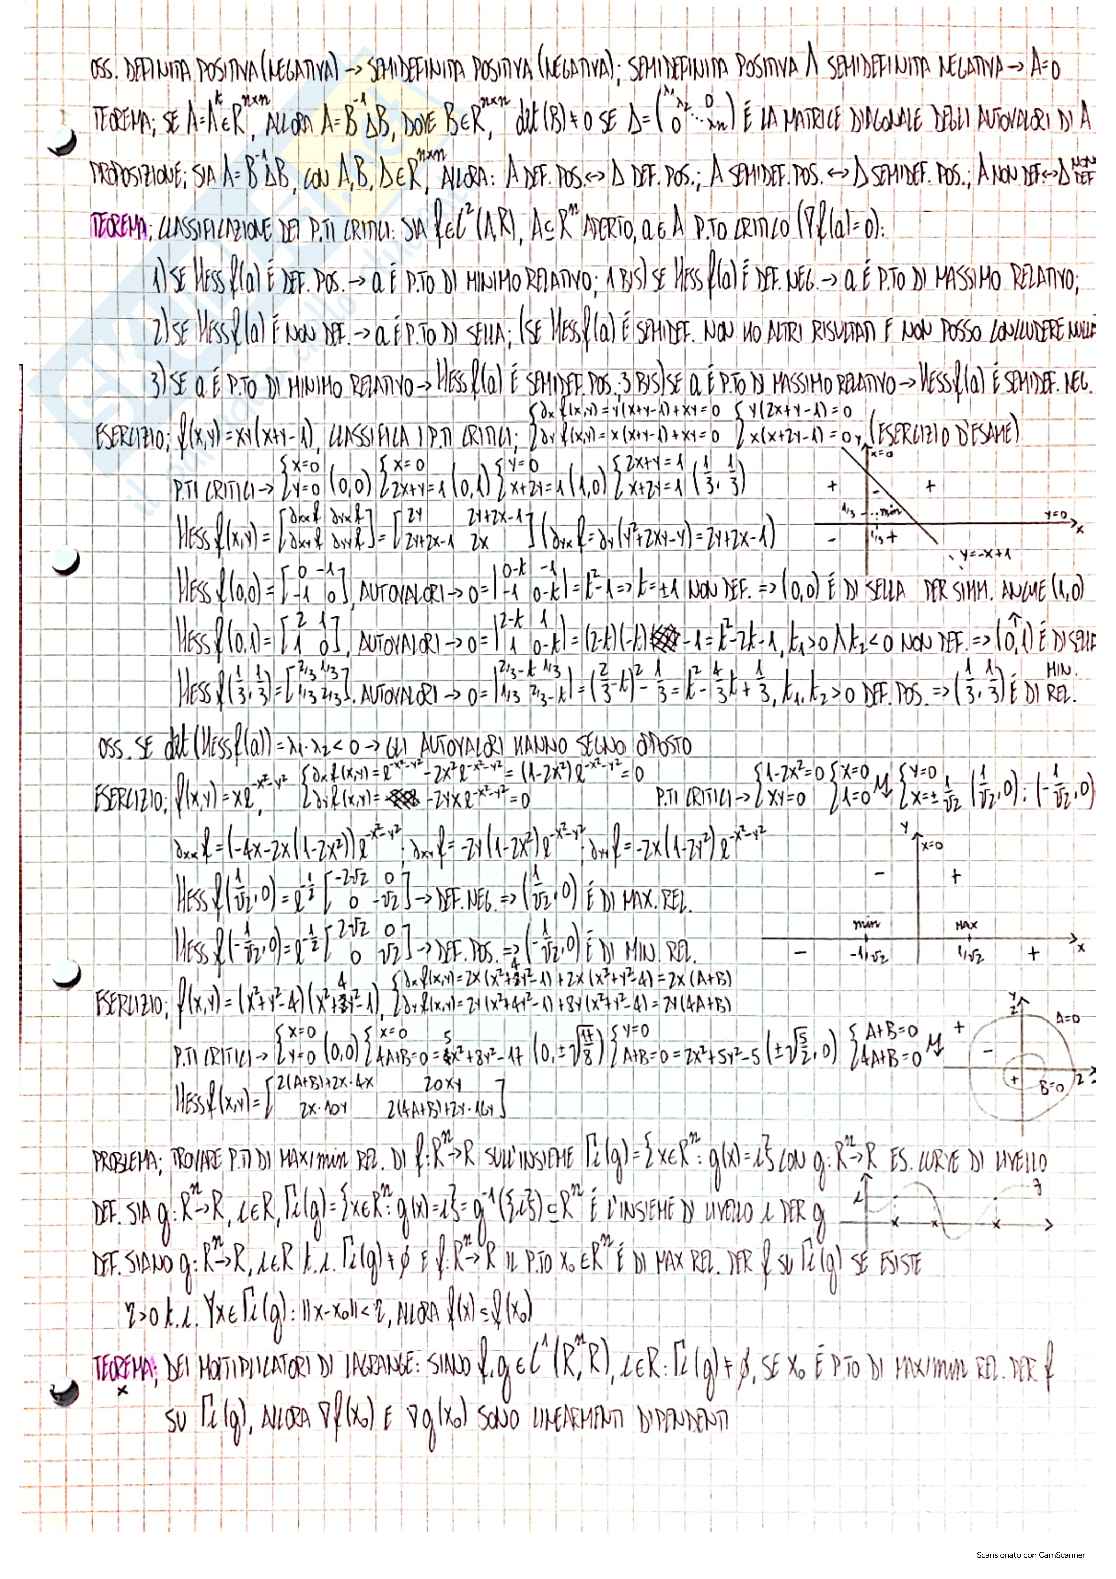 OSS. DEFINITA POSITIVA (NEGATIVA) → SEMIDEFINITA POSITIVA (NEGATIVA); SEMIDEFINITA POSITIVA ∧ SEMIDEFINITA NEGATIVA → A=0
TEOREMA; SE A=Aᵗ∈Rⁿˣⁿ, ALLORA A=B⁻¹ΔB, DOVE B∈Rⁿˣⁿ, det(B)≠0 SE Δ=(λ₁ λ₂ 0 0 ... λn) È LA MATRICE DIAGONALE DEGLI AUTOVALORI DI A
PROPOSIZIONE; SIA A=B⁻¹ΔB, CON A,B,Δ∈Rⁿˣⁿ, ALLORA: A DEF. POS.↔Δ DEF. POS.; A SEMIDEF. POS.↔Δ SEMIDEF. POS.; A NON DEF↔Δ NON DEF
TEOREMA; CLASSIFICAZIONE DEI P.TI CRITICI: SIA f∈C²(A,R), A⊆Rⁿ APERTO, a∈A P.TO CRITICO (∇f(a)=0):
1) SE HESS f(a) È DEF. POS. → a È P.TO DI MINIMO RELATIVO; 1 BIS) SE HESS f(a) È DEF. NEG. → a È P.TO DI MASSIMO RELATIVO;
2) SE HESS f(a) È NON DEF. → a È P.TO DI SELLA; (SE HESS f(a) È SEMIDEF. NON HO ALTRI RISULTATI E NON POSSO CONCLUDERE NULLA
3) SE a È P.TO DI MINIMO RELATIVO → HESS f(a) È SEMIDEF. POS. 3 BIS) SE a È P.TO DI MASSIMO RELATIVO → HESS f(a) È SEMIDEF. NEG.
ESERCIZIO; f(x,y)=xy(x+y-1), CLASSIFICA I P.TI CRITICI; {∂x f(x,y)=y(x+y-1)+xy=0 ∂y f(x,y)=x(x+y-1)+xy=0 {y(2x+y-1)=0 x(x+2y-1)=0 (ESERCIZIO D'ESAME)
P.TI CRITICI → {x=0 y=0 (0,0) {x=0 2x+y=1 (0,1) {y=0 x+2y=1 (1,0) {2x+y=1 x+2y=1 (1/3, 1/3)
y x=0 + - + 1/3 min y=0 x - 1/3 + y=-x+1
HESS f(x,y)=[∂xx f ∂yx f ∂xy f ∂yy f]=[2y 2y+2x-1 2y+2x-1 2x] (∂yx f=∂y(y²+2xy-y)=2y+2x-1)
HESS f(0,0)=[0 -1 -1 0], AUTOVALORI → 0=|0-t -1 -1 0-t|=t²-1 ⇒ t=±1 NON DEF. ⇒ (0,0) È DI SELLA PER SIMM. ANCHE (1,0)
HESS f(0,1)=[2 1 1 0], AUTOVALORI → 0=|2-t 1 1 0-t|=(2-t)(-t)-1=t²-2t-1, t₁>0 ∧ t₂<0 NON DEF. ⇒ (0,1) È DI SELLA
HESS f(1/3,1/3)=[2/3 1/3 1/3 2/3], AUTOVALORI → 0=|2/3-t 1/3 1/3 2/3-t|=(2/3-t)²-1/3=t²-4/3t+1/3, t₁,t₂>0 DEF. POS. ⇒ (1/3,1/3) È DI MIN. REL.
OSS. SE det(HESS f(a))=λ₁·λ₂<0 → GLI AUTOVALORI HANNO SEGNO OPPOSTO
ESERCIZIO; f(x,y)=xe^(-x²-y²), {∂x f(x,y)=e^(-x²-y²)-2x²e^(-x²-y²)=(1-2x²)e^(-x²-y²)=0 ∂y f(x,y)=-2yxe^(-x²-y²)=0 P.TI CRITICI → {1-2x²=0 xy=0 {x=0 1=0 {y=0 x=±1/√2 (1/√2,0); (-1/√2,0)
∂xx f=(-4x-2x(1-2x²))e^(-x²-y²); ∂xy f=-2y(1-2x²)e^(-x²-y²); ∂yy f=-2x(1-2y²)e^(-x²-y²)
HESS f(1/√2,0)=e^(-1/2)[-2√2 0 0 -√2] → DEF. NEG. ⇒ (1/√2,0) È DI MAX. REL.
HESS f(-1/√2,0)=e^(-1/2)[2√2 0 0 √2] → DEF. POS. ⇒ (-1/√2,0) È DI MIN. REL.
y x=0 - + min MAX x - -1/√2 1/√2 +
ESERCIZIO; f(x,y)=(x²+y²-4)(x²+4y²-1), {∂x f(x,y)=2x(x²+4y²-1)+2x(x²+y²-4)=2x(A+B) ∂y f(x,y)=2y(x²+4y²-1)+8y(x²+y²-4)=2y(4A+B)
P.TI CRITICI → {x=0 y=0 (0,0) {x=0 4A+B=0=5x²+8y²-17 (0,±√17/8) {y=0 A+B=0=2x²+5y²-5 (±√5/2,0) {A+B=0 4A+B=0
y 2 A=0 + - + B=0 2 x
HESS f(x,y)=[2(A+B)+2x·4x 20xy 2x·10y 2(4A+B)+2y·16y]
PROBLEMA; TROVARE P.TI DI MAX/min REL. DI f:Rⁿ→R SULL'INSIEME Γc(g)={x∈Rⁿ: g(x)=c} CON g:Rⁿ→R ES. CURVE DI LIVELLO
DEF. SIA g:Rⁿ→R, c∈R, Γc(g)={x∈Rⁿ: g(x)=c}=g⁻¹({c})⊆Rⁿ È L'INSIEME DI LIVELLO c PER g
c g x x x
DEF. SIANO g:Rⁿ→R, c∈R t.c. Γc(g)≠∅ E f:Rⁿ→R IL P.TO x₀∈Rⁿ È DI MAX REL. PER f SU Γc(g) SE ESISTE
r>0 t.c. ∀x∈Γc(g): ||x-x₀||<r, ALLORA f(x)≤f(x₀)
TEOREMA; DEI MOLTIPLICATORI DI LAGRANGE: SIANO f,g∈C¹(Rⁿ,R), c∈R: Γc(g)≠∅, SE x₀ È P.TO DI MAX/min REL. PER f
SU Γc(g), ALLORA ∇f(x₀) E ∇g(x₀) SONO LINEARMENTE DIPENDENTI
Scansionato con CamScanner